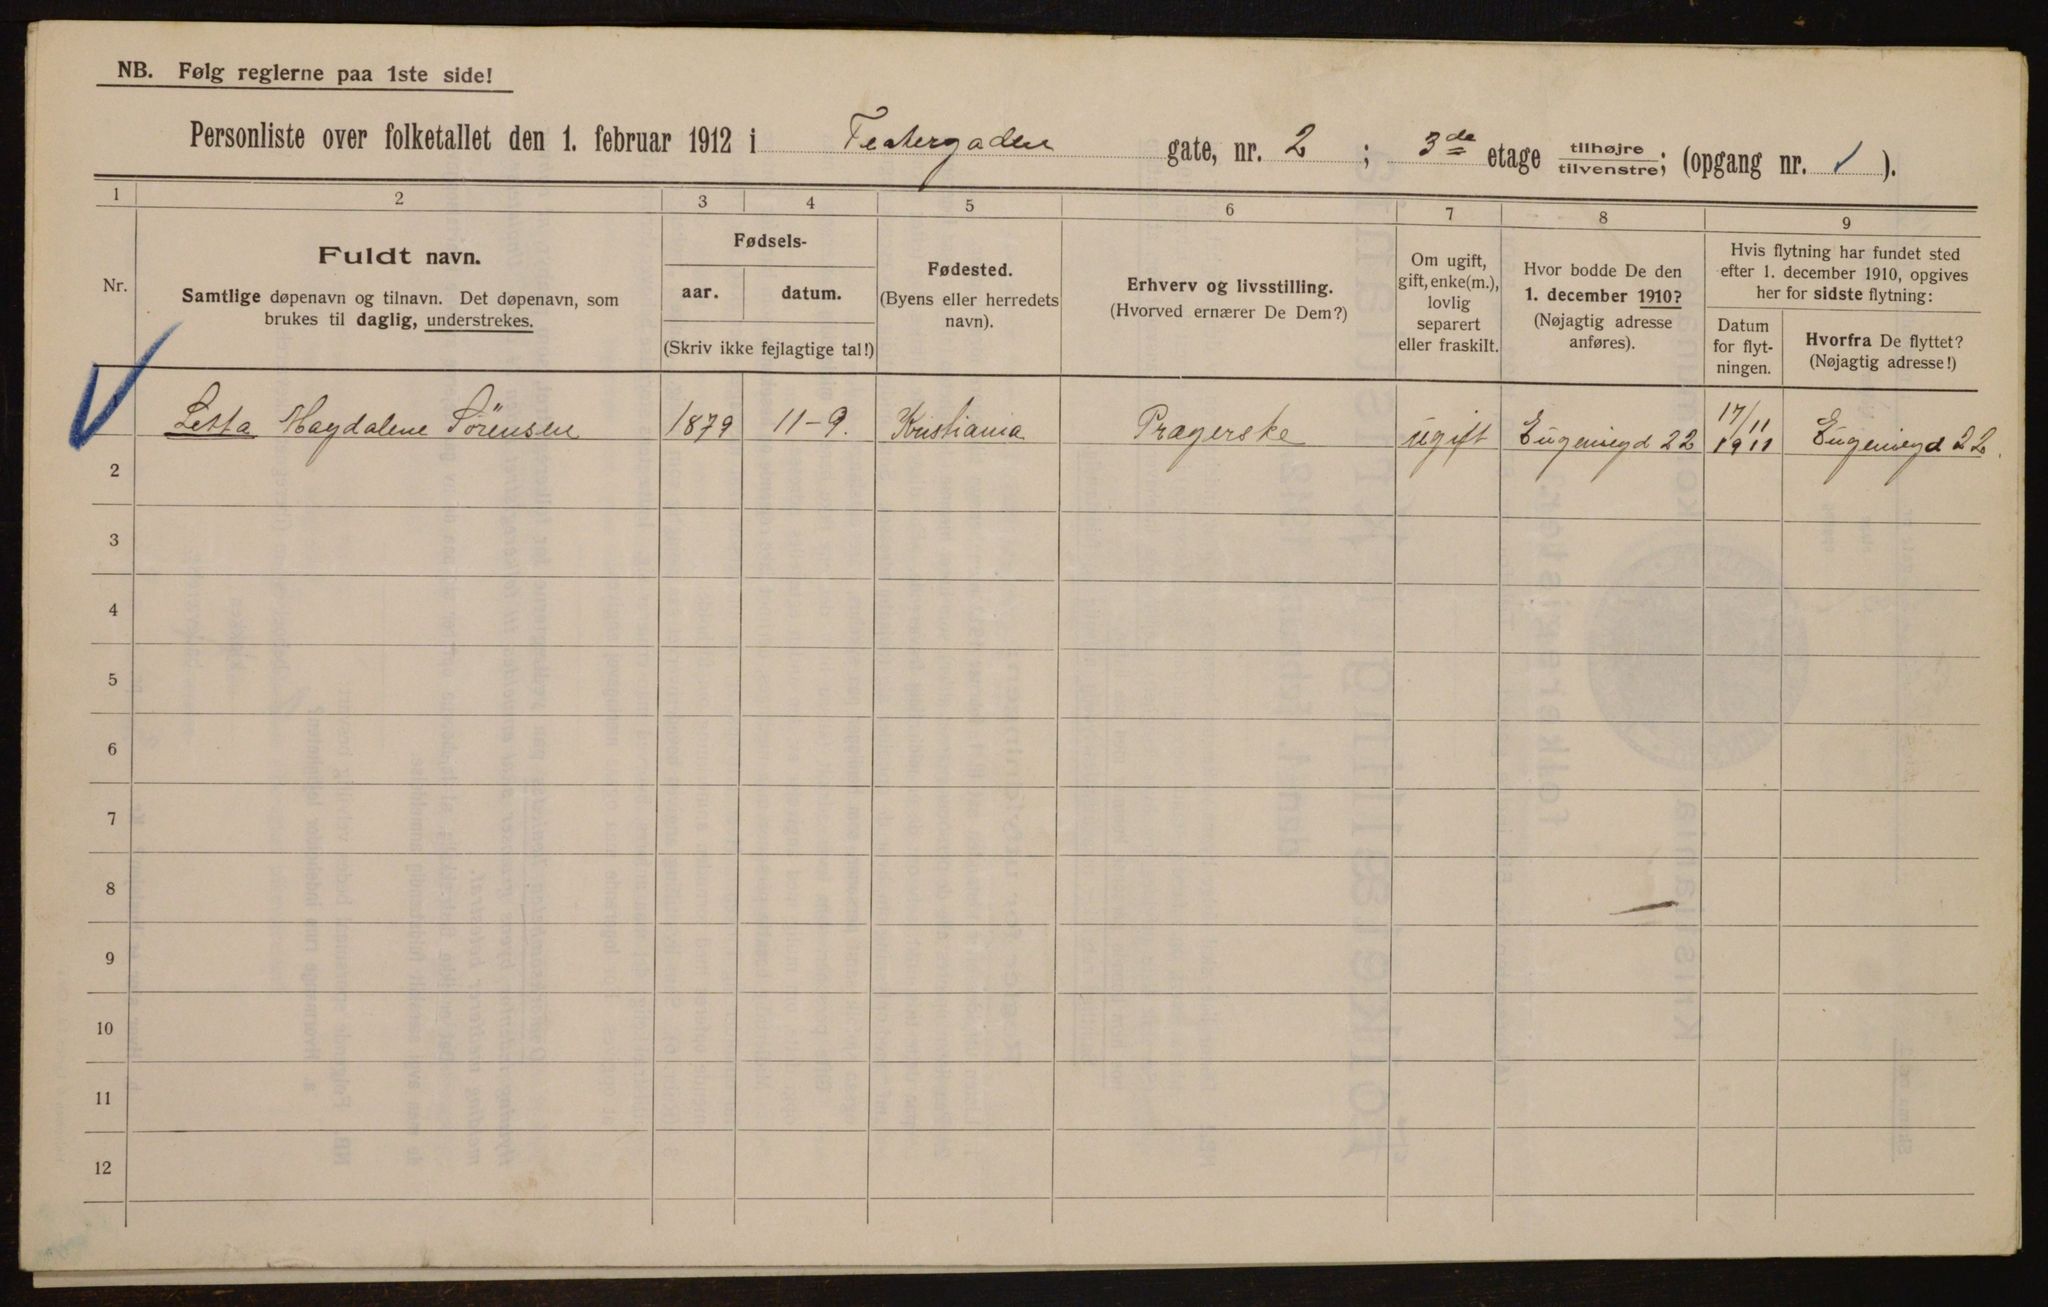 NB. Følg reglerne paa 1ste side!
Personliste over folketallet den 1. februar 1912 i Teatergaden gate, nr. 2 ; 3de etage tilhøjre/tilvenstre; (opgang nr. ✓ ).
1 2 3 4 5 6 7 8 9
Nr.
Fuldt navn.
Samtlige døpenavn og tilnavn. Det døpenavn, som
brukes til daglig, understrekes.
Fødsels-
aar. datum.
(Skriv ikke fejlagtige tal!)
Fødested.
(Byens eller herredets
navn).
Erhverv og livsstilling.
(Hvorved ernærer De Dem?)
Om ugift,
gift, enke(m.),
lovlig
separert
eller fraskilt.
Hvor bodde De den
1. december 1910?
(Nøjagtig adresse
anføres).
Hvis flytning har fundet sted
efter 1. december 1910, opgives
her for sidste flytning:
Datum
for flyt-
ningen.
Hvorfra De flyttet?
(Nøjagtig adresse!)
Magdalene Sörensen 1879 11-9. Kristiania ugift Eugeniegd 22 17/11 1911 Eugeniegd 22.
2
3
4
5
6
7
8
9
10
11
12